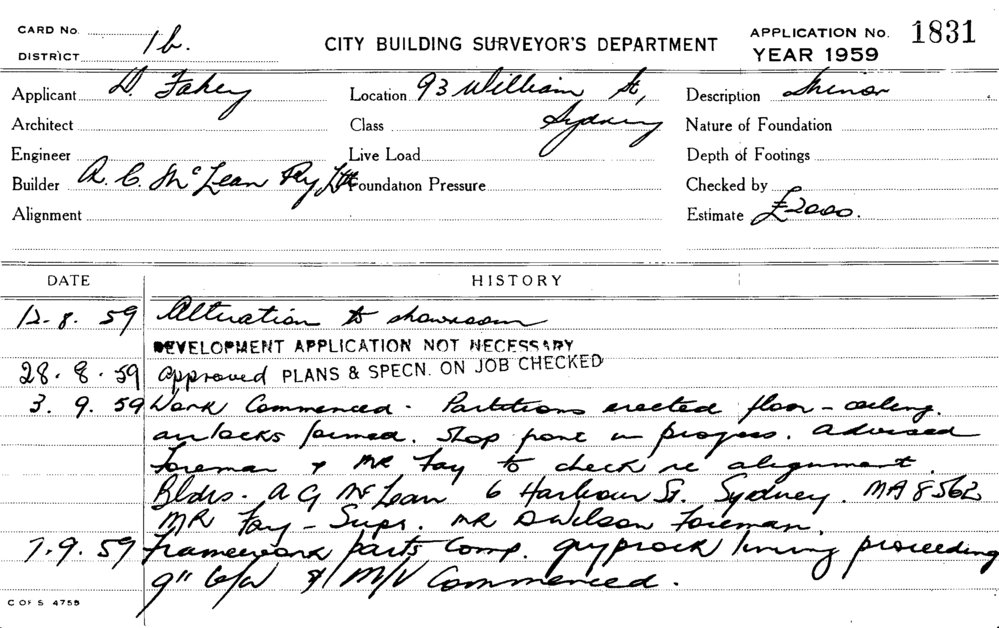 CARD No.
DISTRICT 1b.
CITY BUILDING SURVEYOR'S DEPARTMENT
APPLICATION No. 1831
YEAR 1959
Applicant D. Fahey
Location 93 William St,
Description Minor
Architect
Class Sydney
Nature of Foundation
Engineer
Live Load
Depth of Footings
Builder A. C. McLean Pty Ltd
Foundation Pressure
Checked by
Alignment
Estimate £2000.
DATE HISTORY
12.8.59 Alteration to showroom
DEVELOPMENT APPLICATION NOT NECESSARY
28.8.59 Approved PLANS & SPECN. ON JOB CHECKED
3.9.59 Work Commenced. Partitions erected floor - ceiling.
airlocks formed. Shop front in progress. Advised
Foreman & MR Fay to check re alignment.
Bldrs. A G McLean 6 Harbour St. Sydney. MA 8562
MR Fay - Supr. MR D Wilson Foreman.
7.9.59 Framework parts Comp. gyprock lining proceeding
9" b/w & M/V Commenced.
C OF S 4759